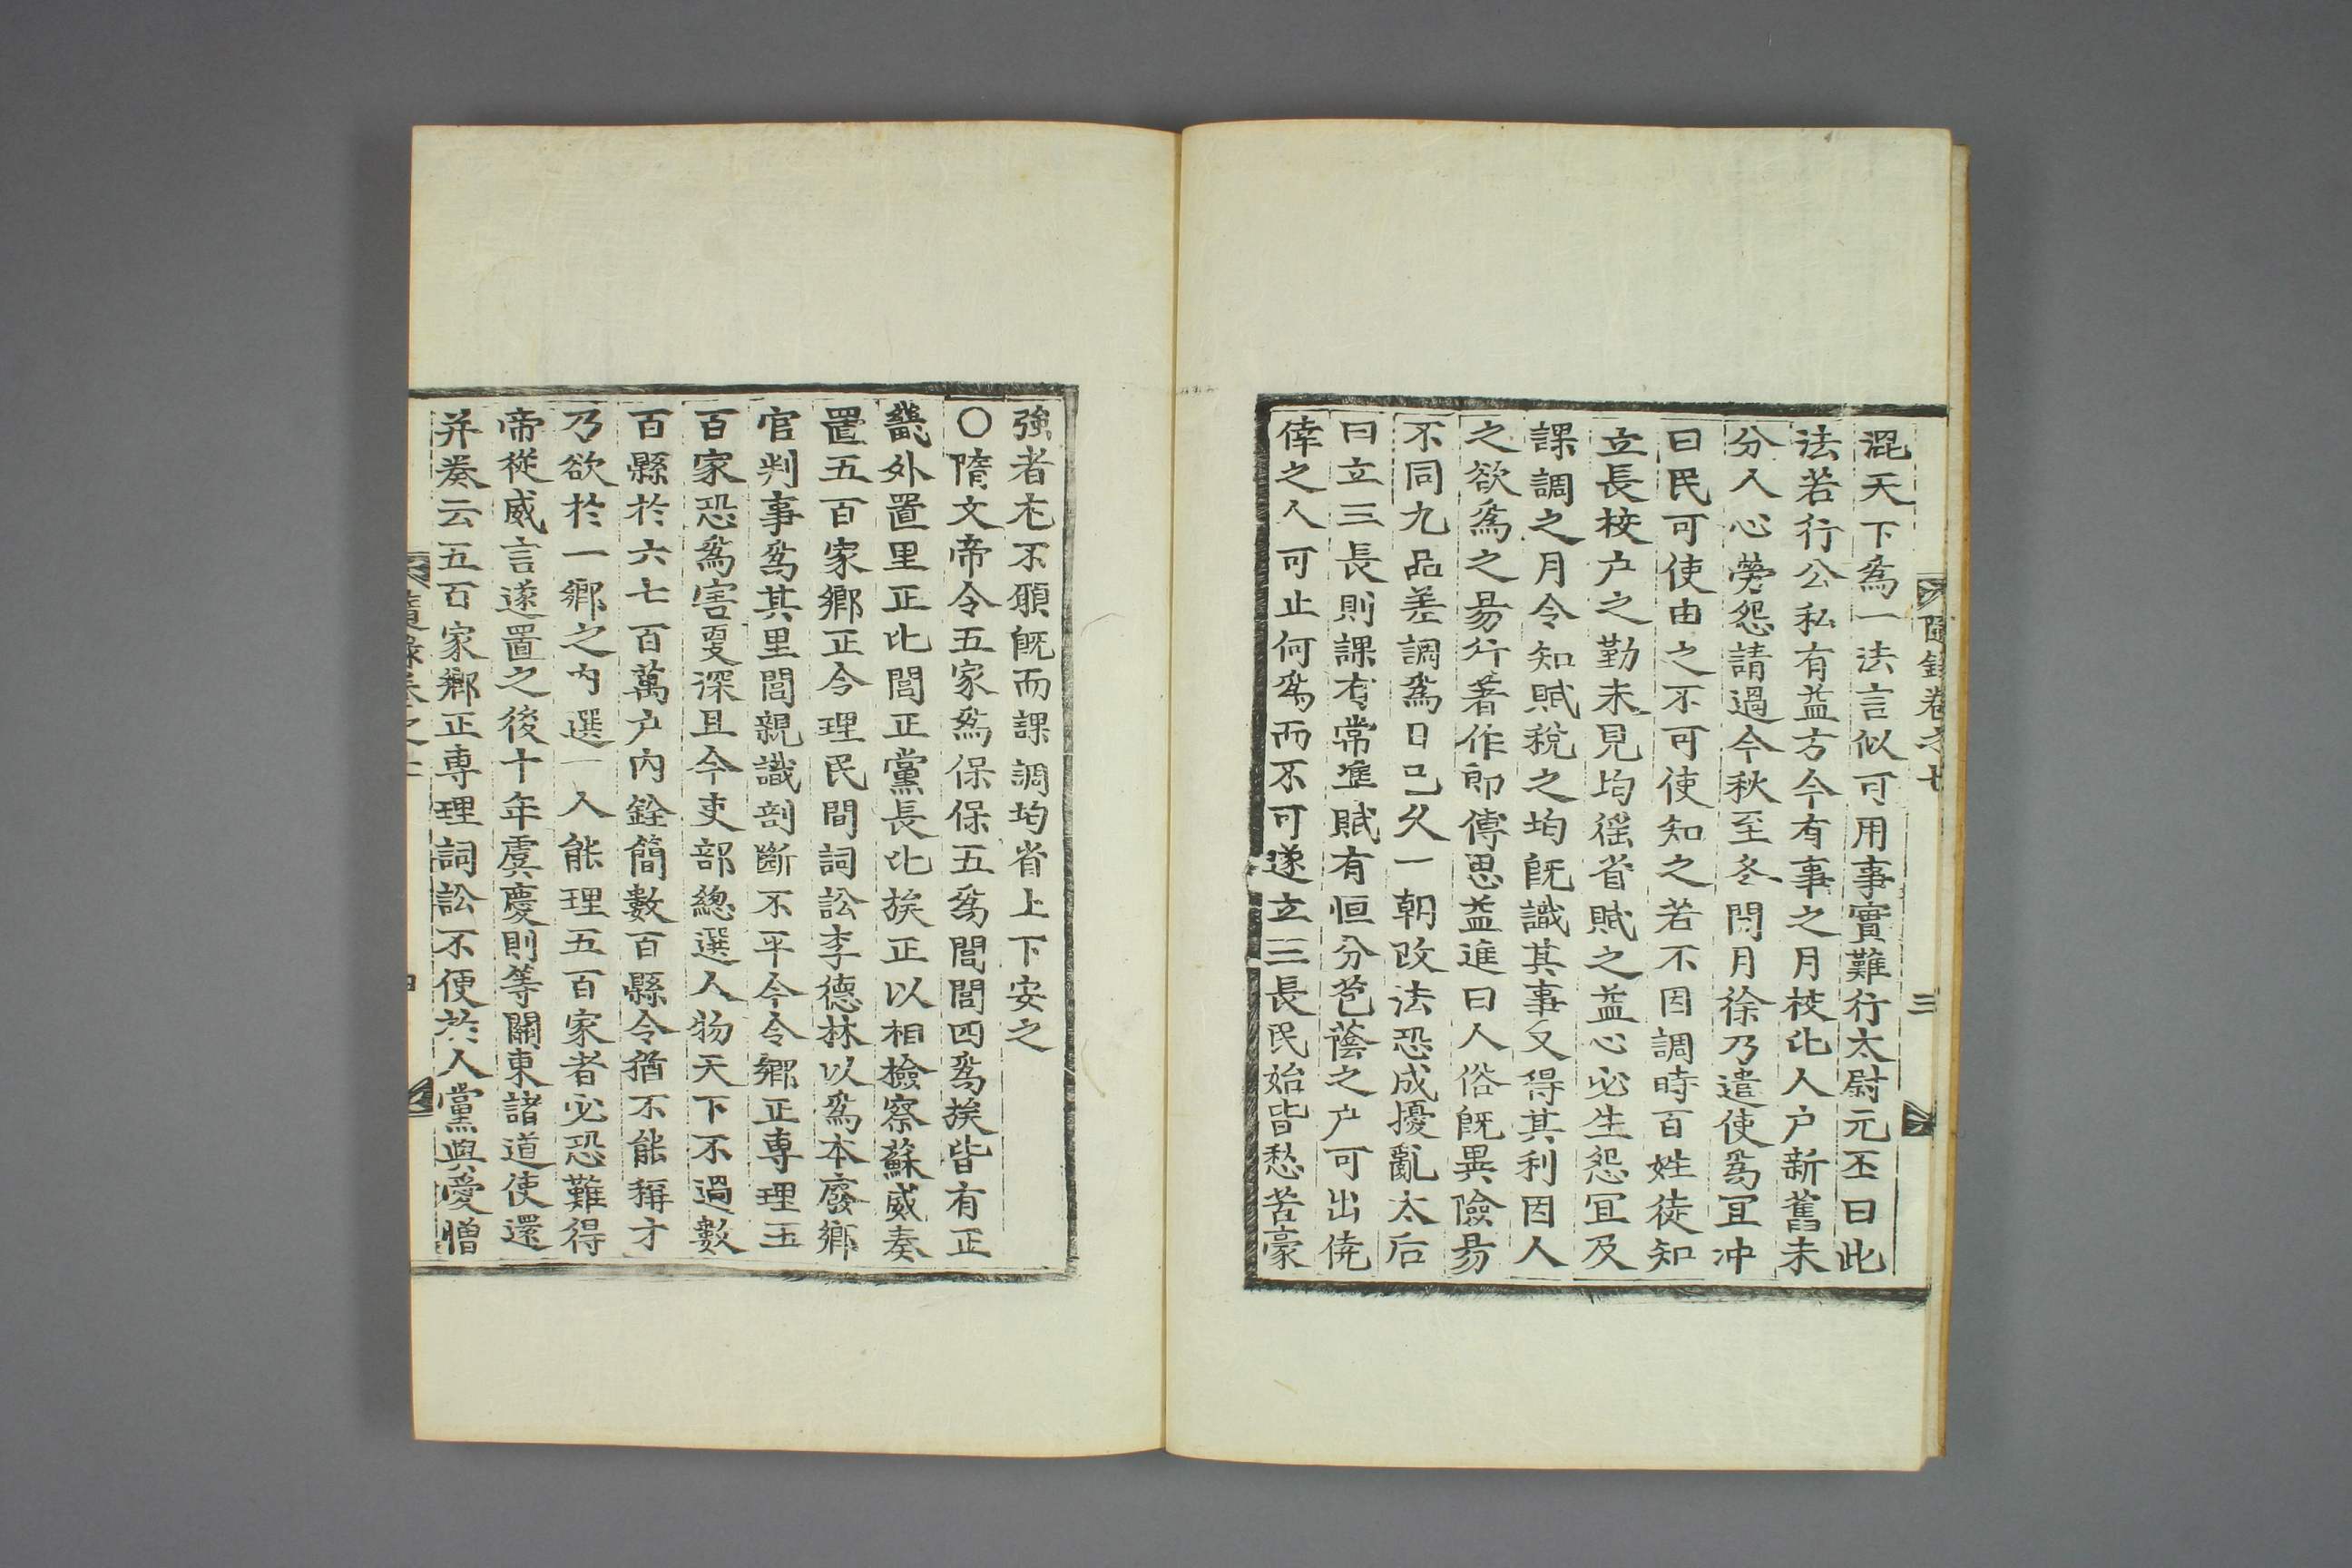 隨錄卷之七
三
混天下爲一法言似可用事實難行太尉元丕曰此
法若行公私有益方今有事之月校比人户新舊未
分人心勞怨請過今秋至冬閑月徐乃遣使爲冝冲
曰民可使由之不可使知之若不因調時百姓徒知
立長校户之勤未見均徭省賦之益心必生怨冝及
課調之月令知賦稅之均旣識其事又得其利因人
之欲爲之昜行著作郎傅思益進曰人俗旣異險昜
不同九品差調爲日已久一朝改法恐成擾亂太后
曰立三長則課有常準賦有恒分苞蔭之户可出僥
倖之人可止何爲而不可遂立三長民始皆愁苦豪
強者尤不願旣而課調均省上下安之
〇隋文帝令五家爲保保五爲閭閭四爲族皆有正
畿外置里正比閭正黨長比族正以相檢察蘇威奏
置五百家鄕正令理民間詞訟李德林以爲本廢鄕
官判事爲其里閭親識剖斷不平今令鄕正專理五
百家恐爲害更深且今吏部總選人物天下不過數
百縣於六七百萬户內銓簡數百縣令猶不能稱才
乃欲於一鄕之內選一人能理五百家者必恐難得
帝從威言遂置之後十年虞慶則等關東諸道使還
并奏云五百家鄕正專理詞訟不便於人黨與愛憎